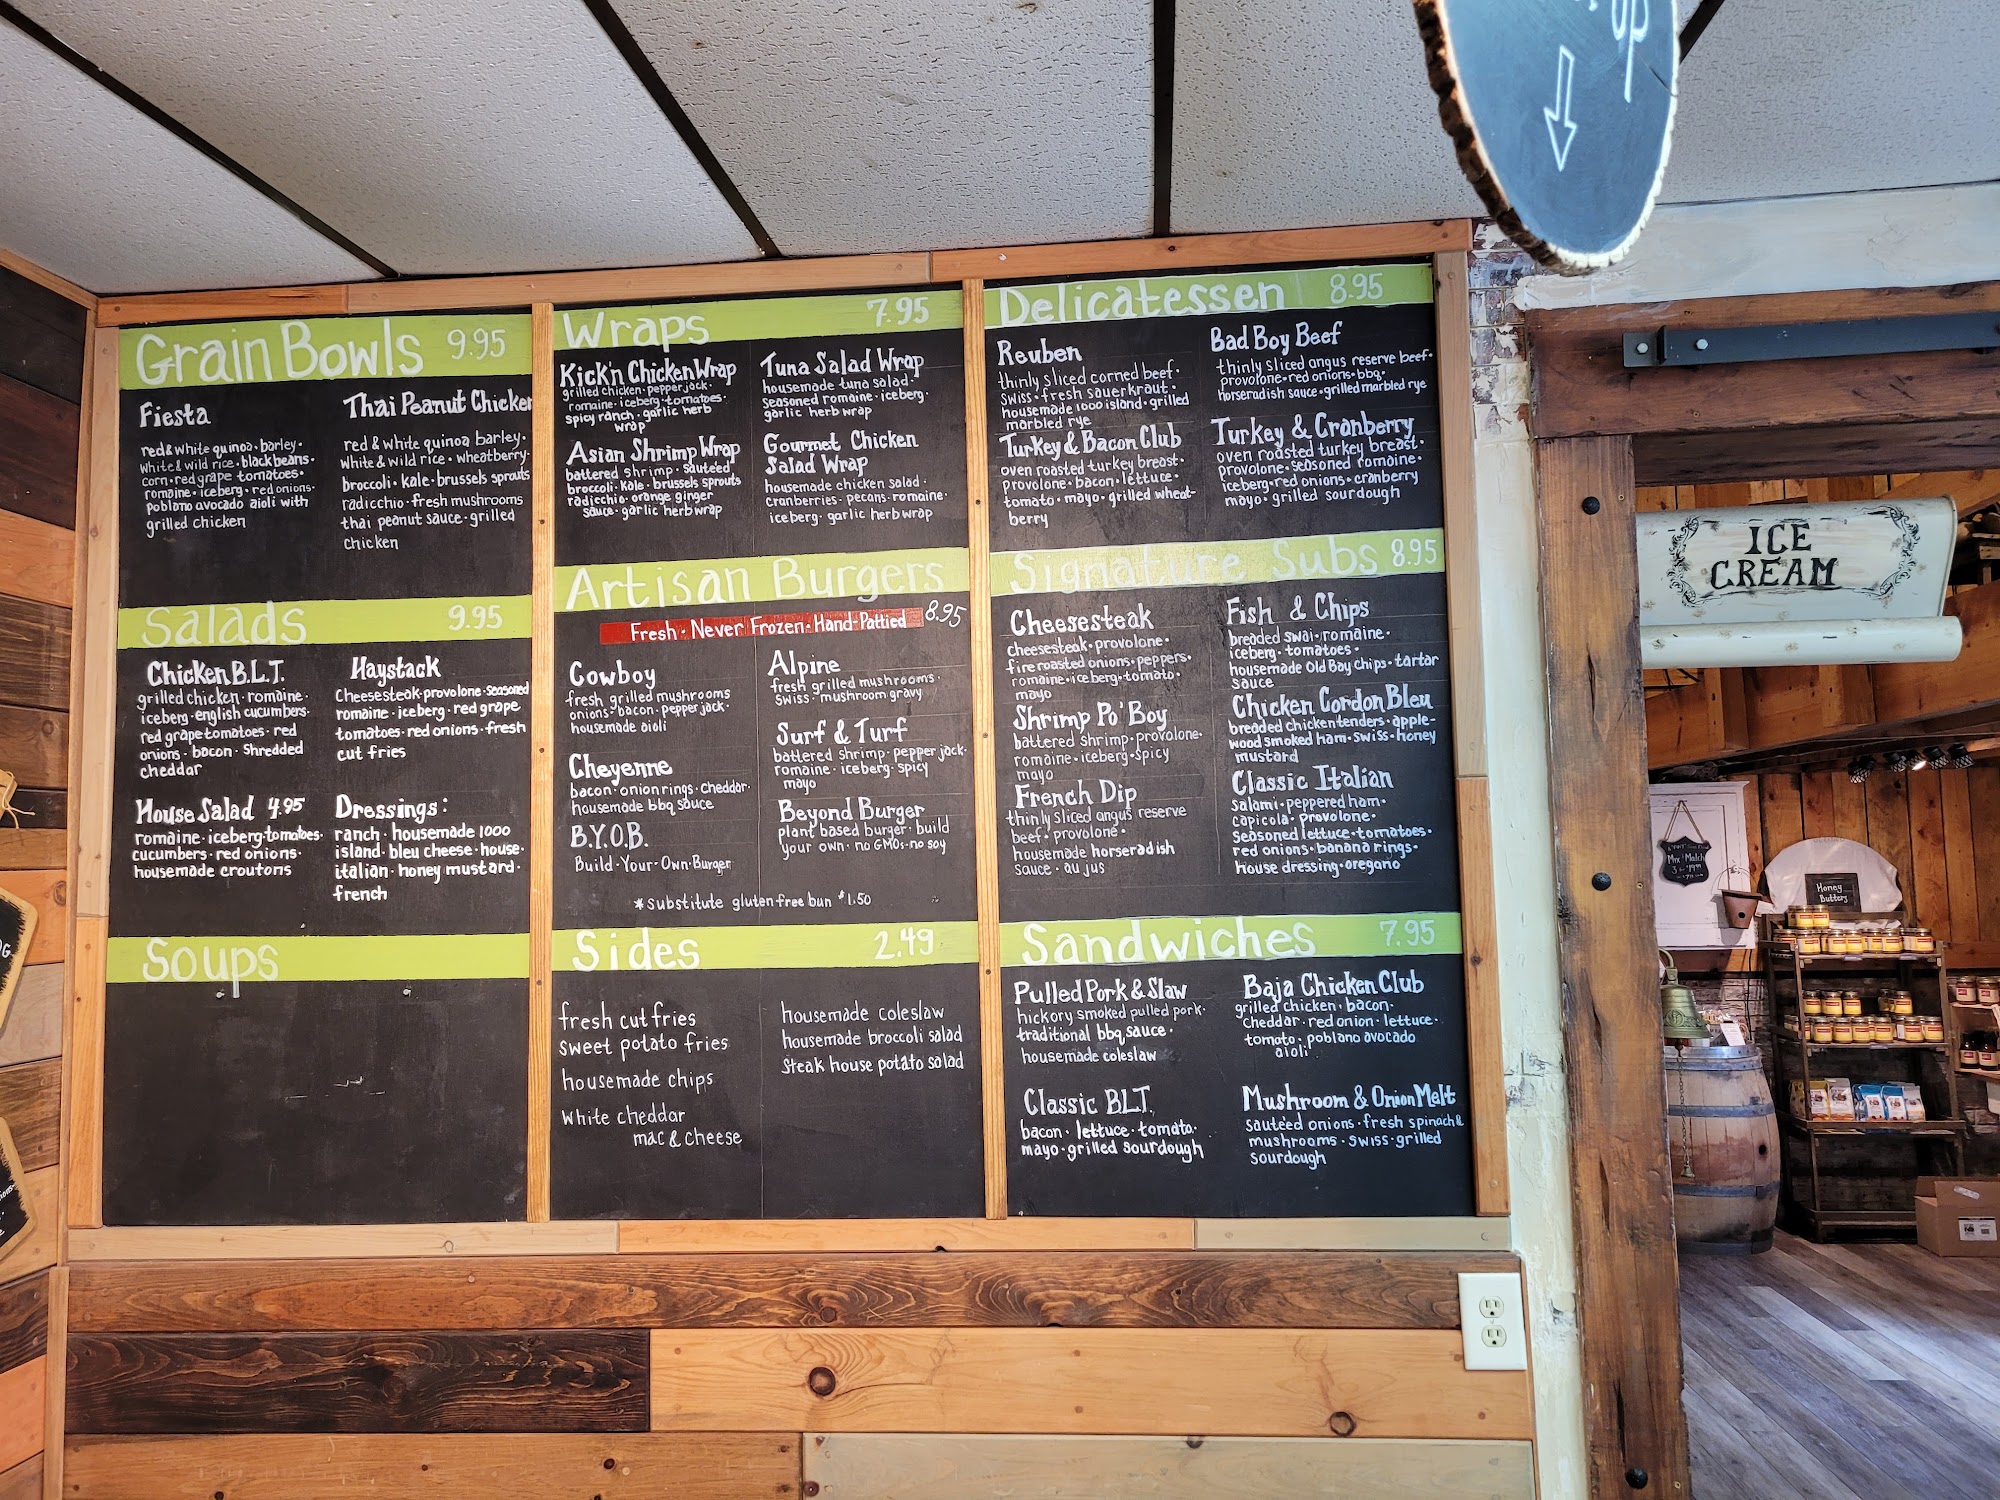 Grain Bowls 9.95
Fiesta
red & white quinoa · barley ·
white & wild rice · black beans ·
corn · red grape tomatoes ·
romaine · iceberg · red onions ·
poblano avocado aioli with
grilled chicken
Thai Peanut Chicken
red & white quinoa barley ·
white & wild rice · wheatberry ·
broccoli · kale · brussels sprouts
radicchio · fresh mushrooms
thai peanut sauce · grilled
chicken
Salads 9.95
Chicken B.L.T.
grilled chicken · romaine ·
iceberg · english cucumbers ·
red grape tomatoes · red
onions · bacon · shredded
cheddar
Haystack
Cheesesteak · provolone · seasoned
romaine · iceberg · red grape
tomatoes · red onions · fresh
cut fries
House Salad 4.95
romaine · iceberg · tomatoes ·
cucumbers · red onions ·
housemade croutons
Dressings:
ranch · housemade 1000
island · bleu cheese · house ·
italian · honey mustard ·
french
Soups
Wraps 7.95
Kick'n Chicken Wrap
grilled chicken · pepper jack ·
romaine · iceberg · tomatoes ·
spicy ranch · garlic herb
wrap
Tuna Salad Wrap
housemade tuna salad ·
seasoned romaine · iceberg ·
garlic herb wrap
Asian Shrimp Wrap
battered shrimp · sauteed
broccoli · kale · brussels sprouts
radicchio · orange ginger
sauce · garlic herb wrap
Gourmet Chicken
Salad Wrap
housemade chicken salad ·
cranberries · pecans · romaine ·
iceberg · garlic herb wrap
Artisan Burgers
Fresh · Never Frozen · Hand-Pattied 8.95
Cowboy
fresh grilled mushrooms
onions · bacon · pepper jack ·
housemade aioli
Alpine
fresh grilled mushrooms ·
swiss · mushroom gravy
Cheyenne
bacon · onion rings · cheddar ·
housemade bbq sauce
Surf & Turf
battered shrimp · pepper jack ·
romaine · iceberg · spicy
mayo
B.Y.O.B.
Build-Your-Own-Burger
Beyond Burger
plant based burger · build
your own · no GMOs · no soy
* substitute gluten free bun $1.50
Sides 2.49
fresh cut fries
sweet potato fries
housemade chips
white cheddar
mac & cheese
housemade coleslaw
housemade broccoli salad
Steak house potato salad
Delicatessen 8.95
Reuben
thinly sliced corned beef ·
swiss · fresh sauerkraut ·
housemade 1000 island · grilled
marbled rye
Bad Boy Beef
thinly sliced angus reserve beef ·
provolone · red onions · bbq ·
horseradish sauce · grilled marbled rye
Turkey & Bacon Club
oven roasted turkey breast ·
provolone · bacon · lettuce ·
tomato · mayo · grilled wheat-
berry
Turkey & Cranberry
oven roasted turkey breast ·
provolone · seasoned romaine ·
iceberg · red onions · cranberry
mayo · grilled sourdough
Signature Subs 8.95
Cheesesteak
cheesesteak · provolone ·
fire roasted onions · peppers ·
romaine · iceberg · tomato ·
mayo
Fish & Chips
breaded swai · romaine ·
iceberg · tomatoes ·
housemade Old Bay chips · tartar
sauce
Shrimp Po' Boy
battered shrimp · provolone ·
romaine · iceberg · spicy
mayo
Chicken Cordon Bleu
breaded chicken tenders · apple-
wood smoked ham · swiss · honey
mustard
French Dip
thinly sliced angus reserve
beef · provolone ·
housemade horseradish
sauce · au jus
Classic Italian
Salami · peppered ham ·
capicola · provolone ·
seasoned lettuce · tomatoes ·
red onions · banana rings ·
house dressing · oregano
Sandwiches 7.95
Pulled Pork & Slaw
hickory smoked pulled pork ·
traditional bbq sauce ·
housemade coleslaw
Baja Chicken Club
grilled chicken · bacon ·
cheddar · red onion · lettuce ·
tomato · poblano avocado
aioli
Classic BLT.
bacon · lettuce · tomato ·
mayo · grilled sourdough
Mushroom & Onion Melt
sauteed onions · fresh spinach &
mushrooms · swiss · grilled
sourdough
up
ICE
CREAM
Mix & Match
Honey
Butters